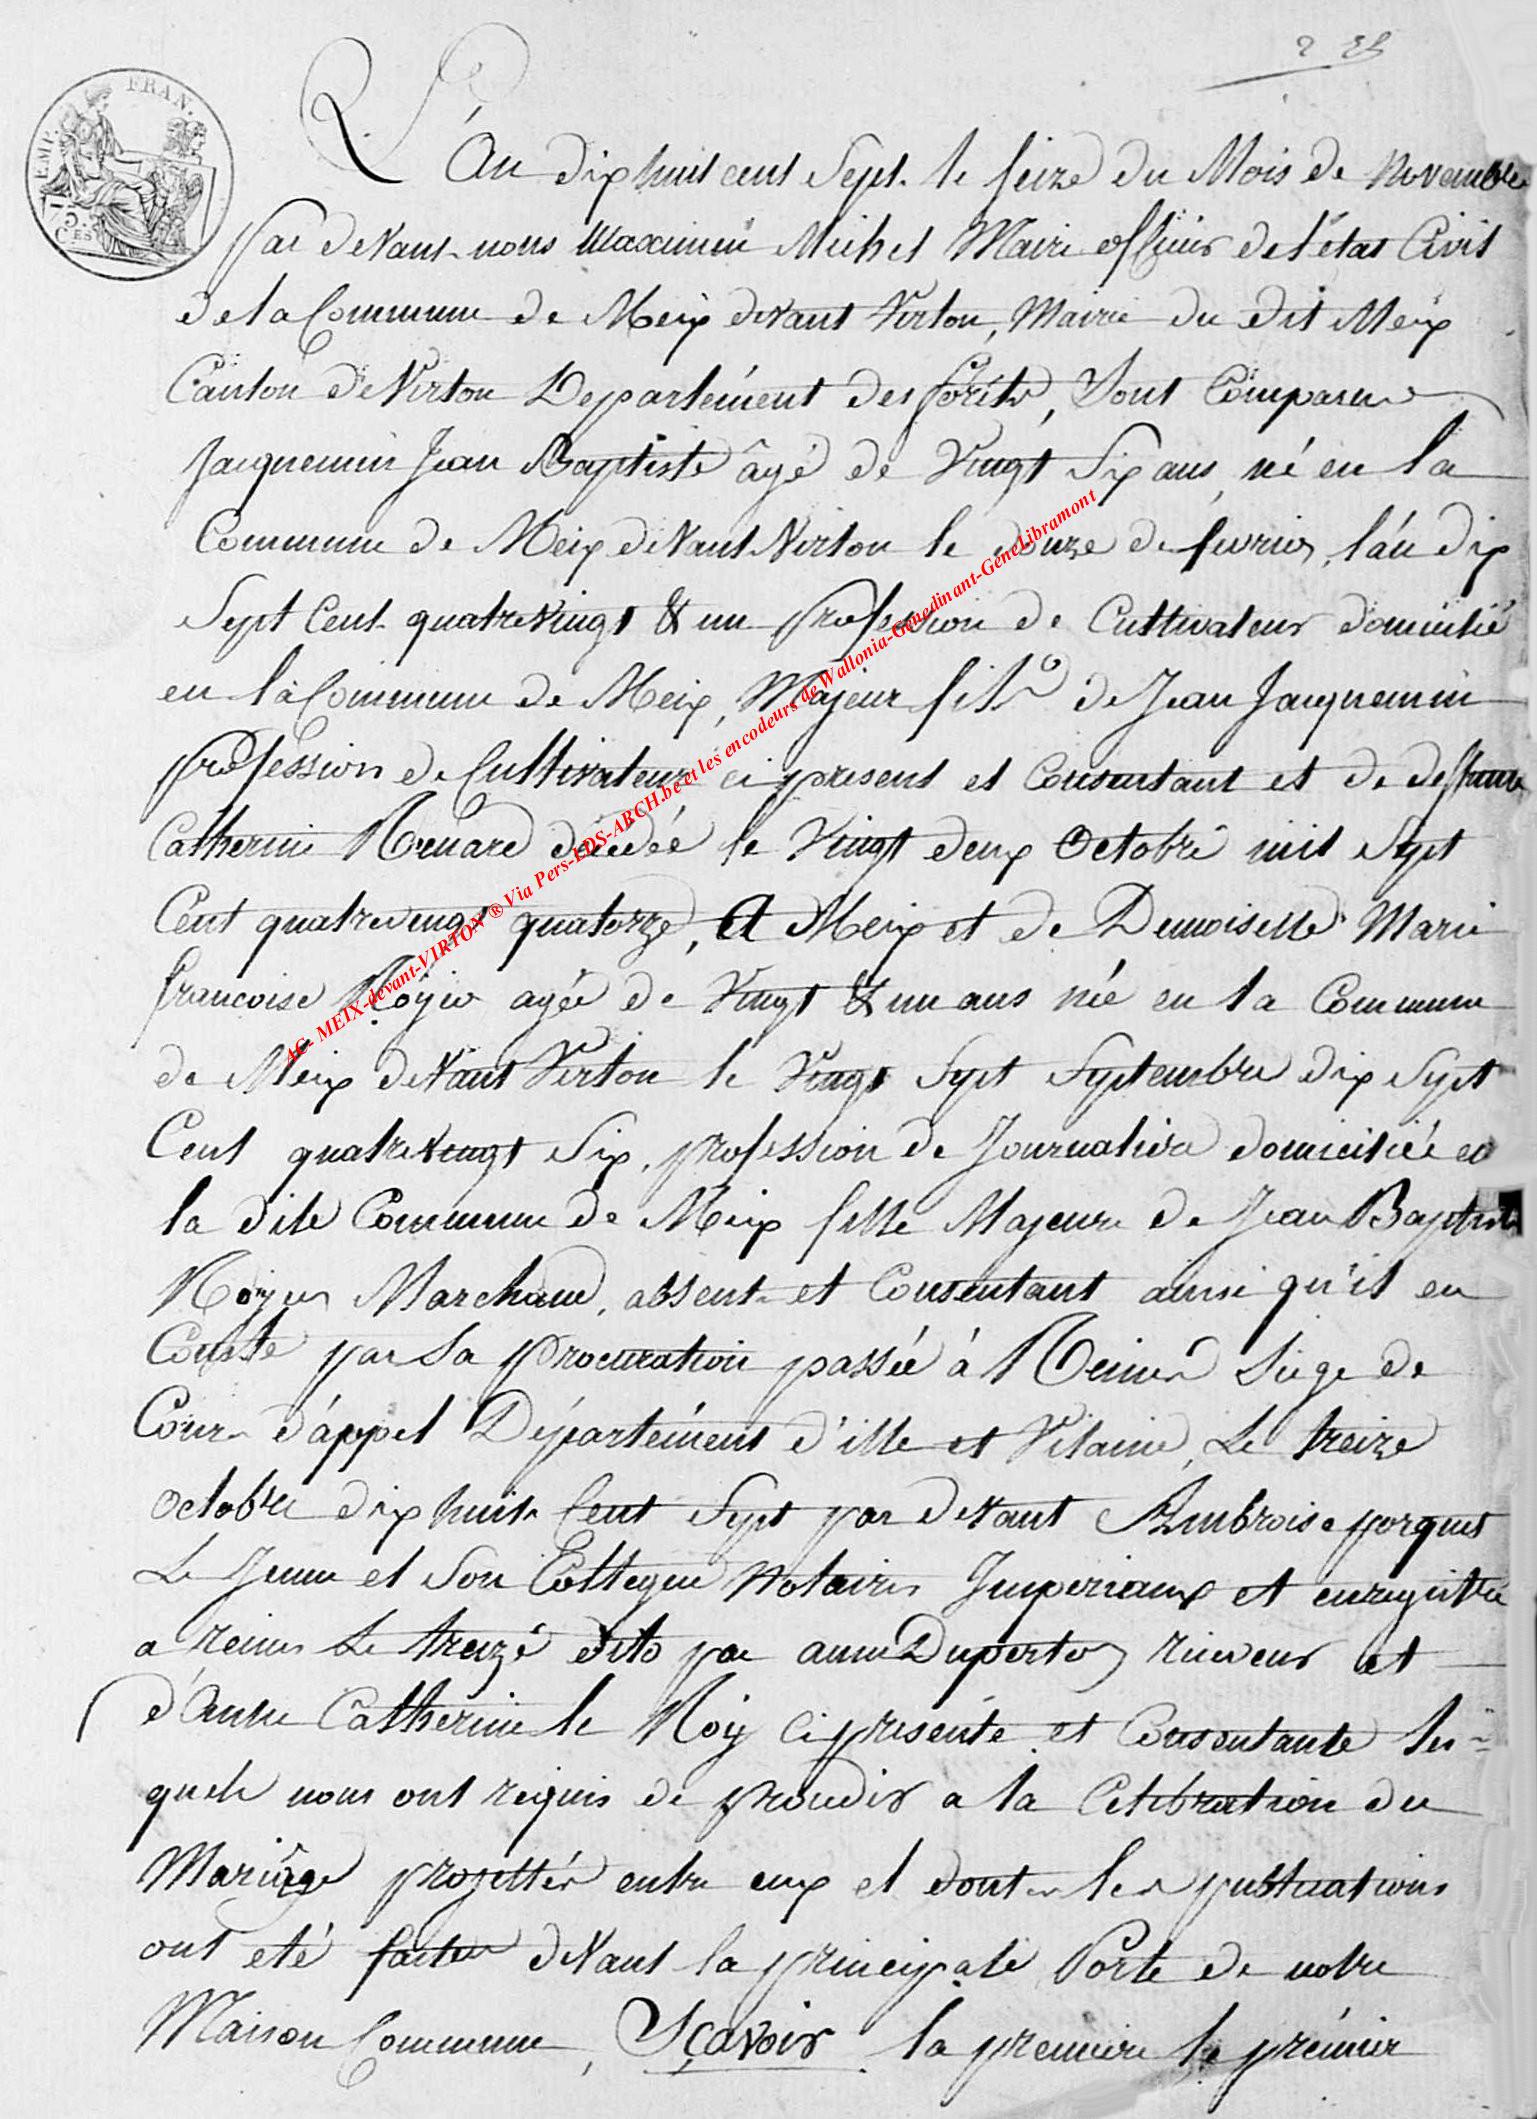 EMP. FRAN.
75 Ces
L'An dix huit cent Sept. le seize du Mois de Novembre
par devant nous Maximin Michel Maire officier de l'état Civil
de la Commune de Meix devant Virton, Mairie du dit Meix
Canton de Virton Departément des foréts, Sont Comparus
Jacquemin Jean Baptiste âgé de Vingt Six ans, né en la
Commune de Meix devant Virton le douze de fevrier, l'an dix
Sept Cent quatre vingt & un profession de Cultivateur domicilié
en la Commune de Meix, Majeur fils de Jean Jacquemin
profession de Cultivateur ci present et Consentant et de deffunte
Catherine décédée le Vingt deux Octobre mil Sept
Cent quatre vingt quatorze, A Meix et de Demoiselle Marie
francoise agée de Vingt & un ans née en la Commune
de Meix devant Virton le Vingt Sept Septembre dix Sept
Cent quatre vingt Six, profession de Journalière domiciliée en
la dite Commune de Meix fille Majeure de Jean Baptiste
Marchand, absent et Consentant ainsi qu'il en
Conste par Sa procuration passée à Siège de
Cour d'áppel Département d'ille et Vilaine, Le treize
Octobre dix huit Cent Sept par devant Ambroise porquet
Le Jeune et Son Collegue Notaires Imperiaux et enregistrée
a Le treizé dito par receveur et
d'Anne Catherine le Roy Ci présente et Consentante les-
quels nous ont requis de proceder a la Celebration du
Mariage projettés entre eux et dont les publications
ont eté faites devant la principale Porte de notre
Maison Commune, Sçavoir la premiere le prémier
AC- MEIX-devant-VIRTON ® Via Pers-LDS-ARCH.be et les encodeurs de Wallonia-Genedinant-GeneLibramont